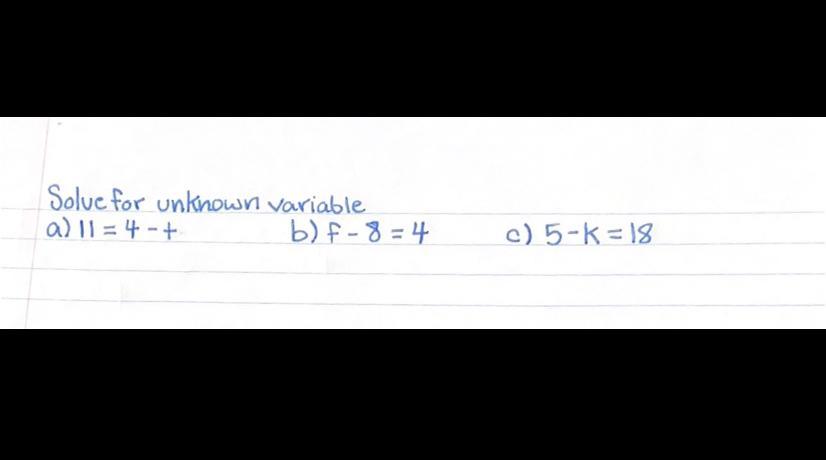 Solve for unknown variable
a) 11 = 4 - t b) f - 8 = 4 c) 5 - k = 18